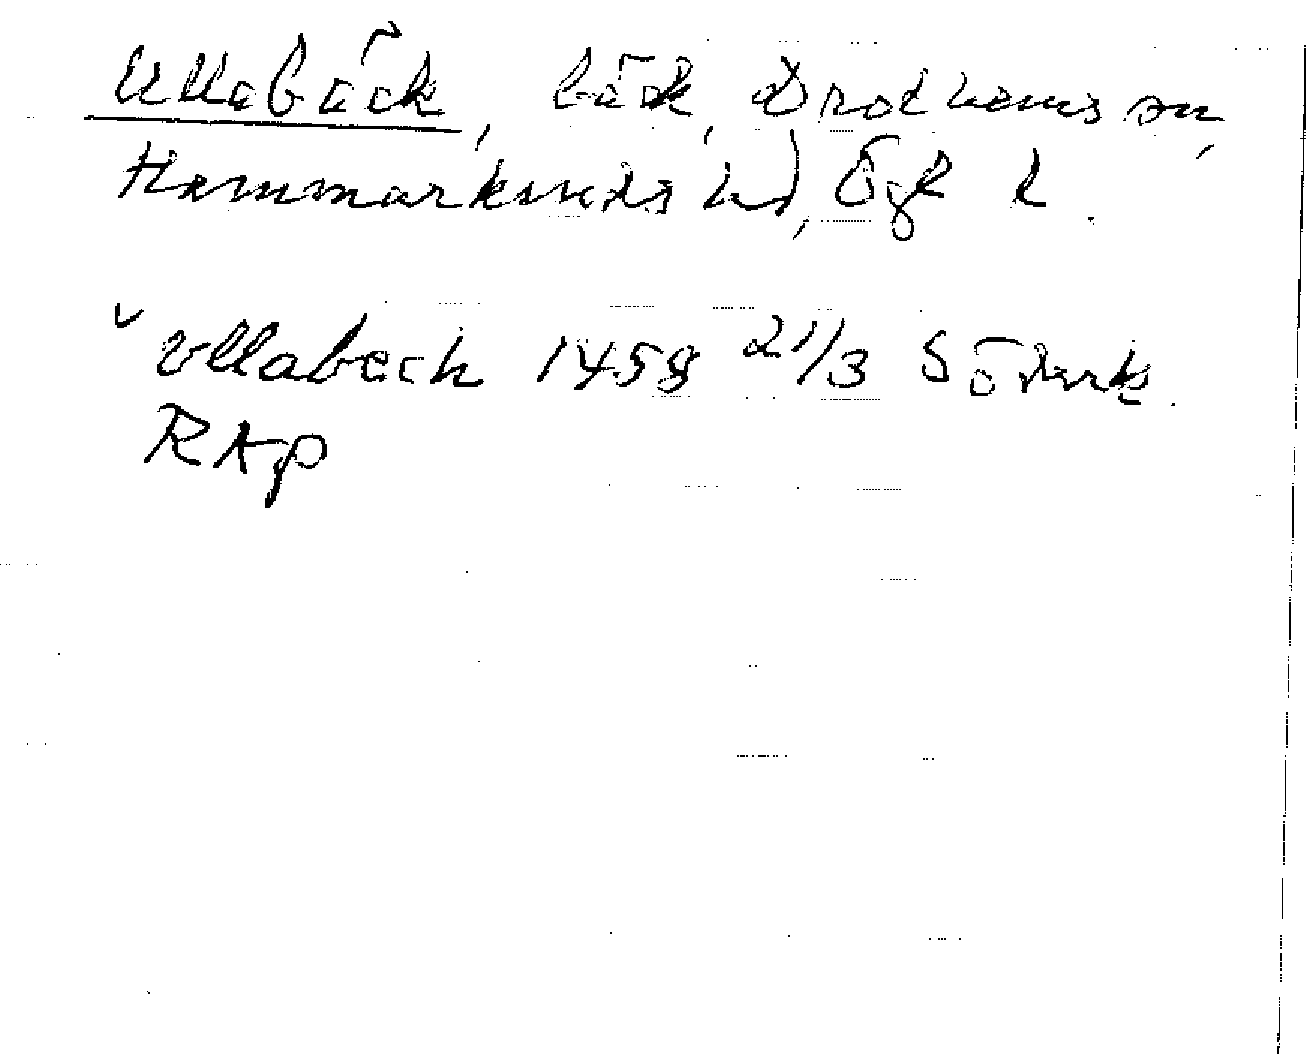 Ullabäck, bäck, Drothems sn,
Hammarkinds hd, Ögl l.
v Ullabech 1458 21/3 Söderk.
RAp